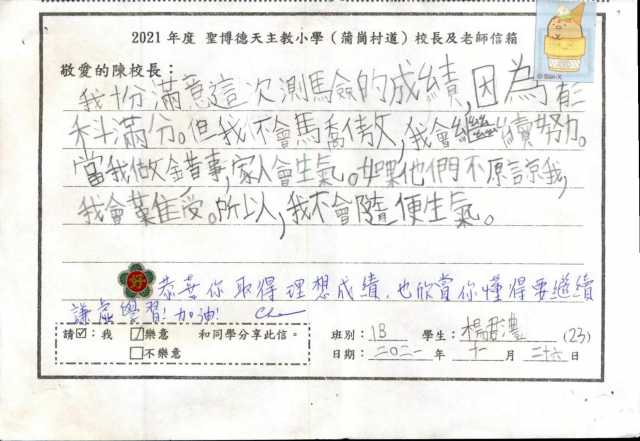 2021年度 聖博德天主教小學（蒲崗村道）校長及老師信箱
敬愛的陳校長：
我十分滿意這次測驗的成績，因為有三
科滿分。但我不會驕傲，我會繼續努力。
當我做錯事，家人會生氣。如果他們不原諒我，
我會難受。所以，我不會隨便生氣。
恭喜你取得理想成績，也欣賞你懂得要繼續
謙虛學習！加油！
請☑：我 ☑樂意 和同學分享此信。
□不樂意
班別：1B 學生：楊 (23)
日期：二〇二一 年 十一 月 二十六 日